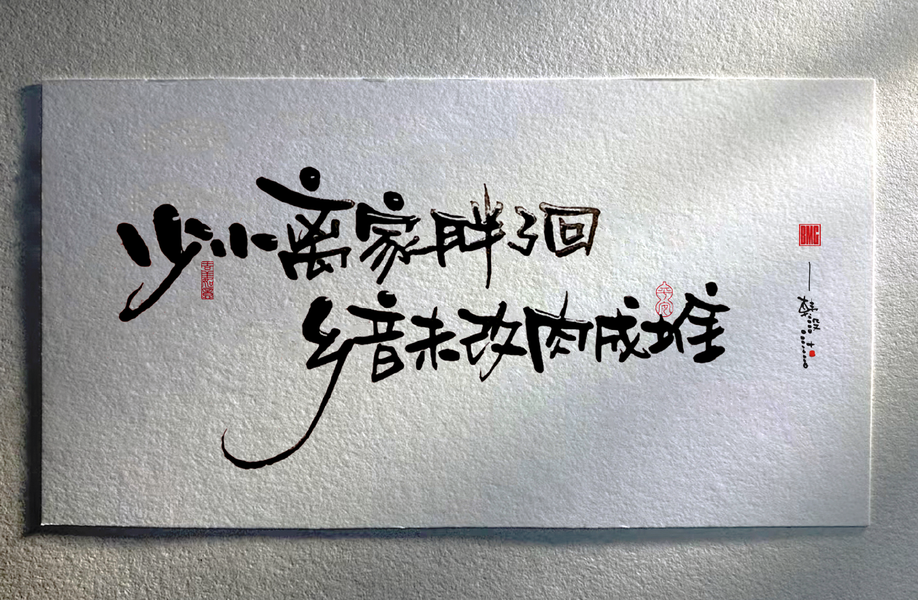 少小离家胖了回
乡音未改肉成堆
BMG